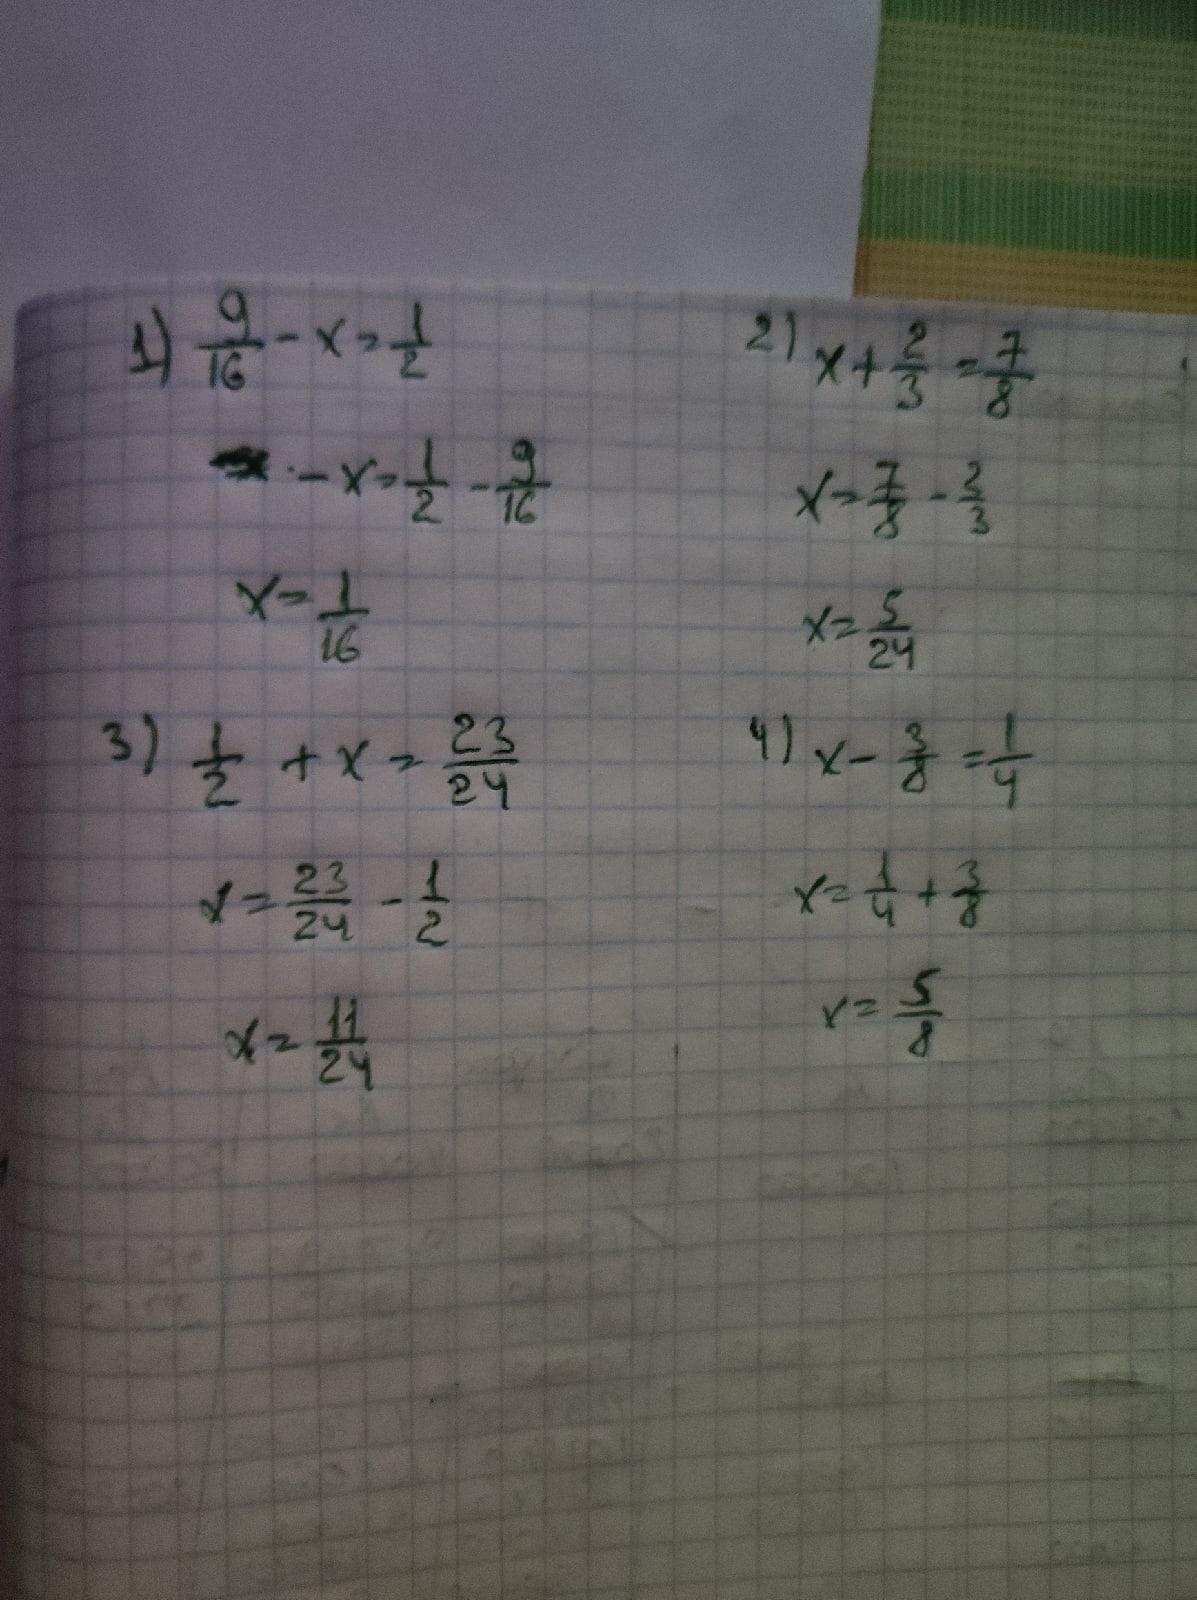 1) 9/16 - x = 1/2
- x = 1/2 - 9/16
x = 1/16
2) x + 2/3 = 7/8
x = 7/8 - 2/3
x = 5/24
3) 1/2 + x = 23/24
x = 23/24 - 1/2
x = 11/24
4) x - 3/8 = 1/4
x = 1/4 + 3/8
x = 5/8